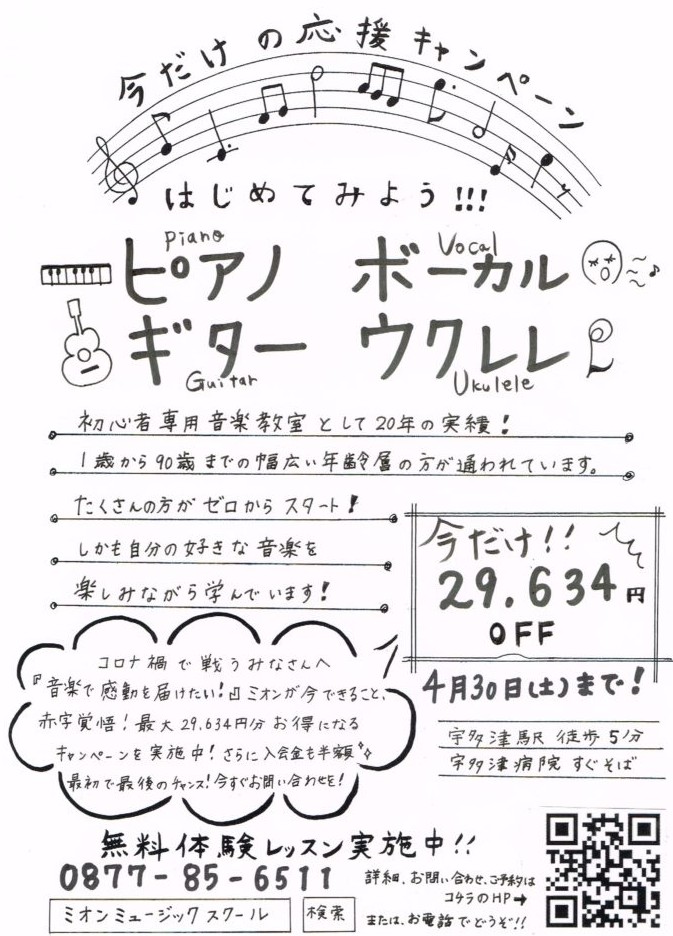 今だけの応援キャンペーン
はじめてみよう!!!
piano
ピアノ
Vocal
ボーカル
ギター
Guitar
ウクレレ
Ukulele
初心者専用音楽教室として20年の実績!
1歳から90歳までの幅広い年齢層の方が通われています。
たくさんの方がゼロからスタート!
しかも自分の好きな音楽を
楽しみながら学んでいます!
今だけ!!
29.634円
OFF
4月30日(土)まで!
コロナ禍で戦うみなさんへ
『音楽で感動を届けたい!』ミオンが今できること、
赤字覚悟!最大29.634円分お得になる
キャンペーンを実施中!さらに入会金も半額
最初で最後のチャンス!今すぐお問い合わせを!
宇多津駅 徒歩5分
宇多津病院 すぐそば
無料体験レッスン実施中!!
0877-85-6511
ミオンミュージックスクール
検索
詳細、お問い合わせ、ご予約は
コチラのHP→
または、お電話でどうぞ!!